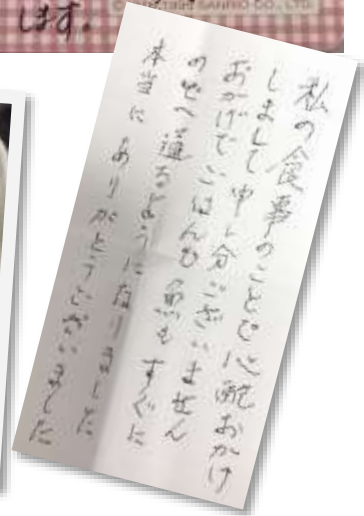 します。
©1976,1999 SANRIO CO., LTD.
私の食事のことで心配おかけ
しまして申し分ございません
おかげでごはんも魚もすぐに
のどへ通るようになりました
本当にありがとうございました